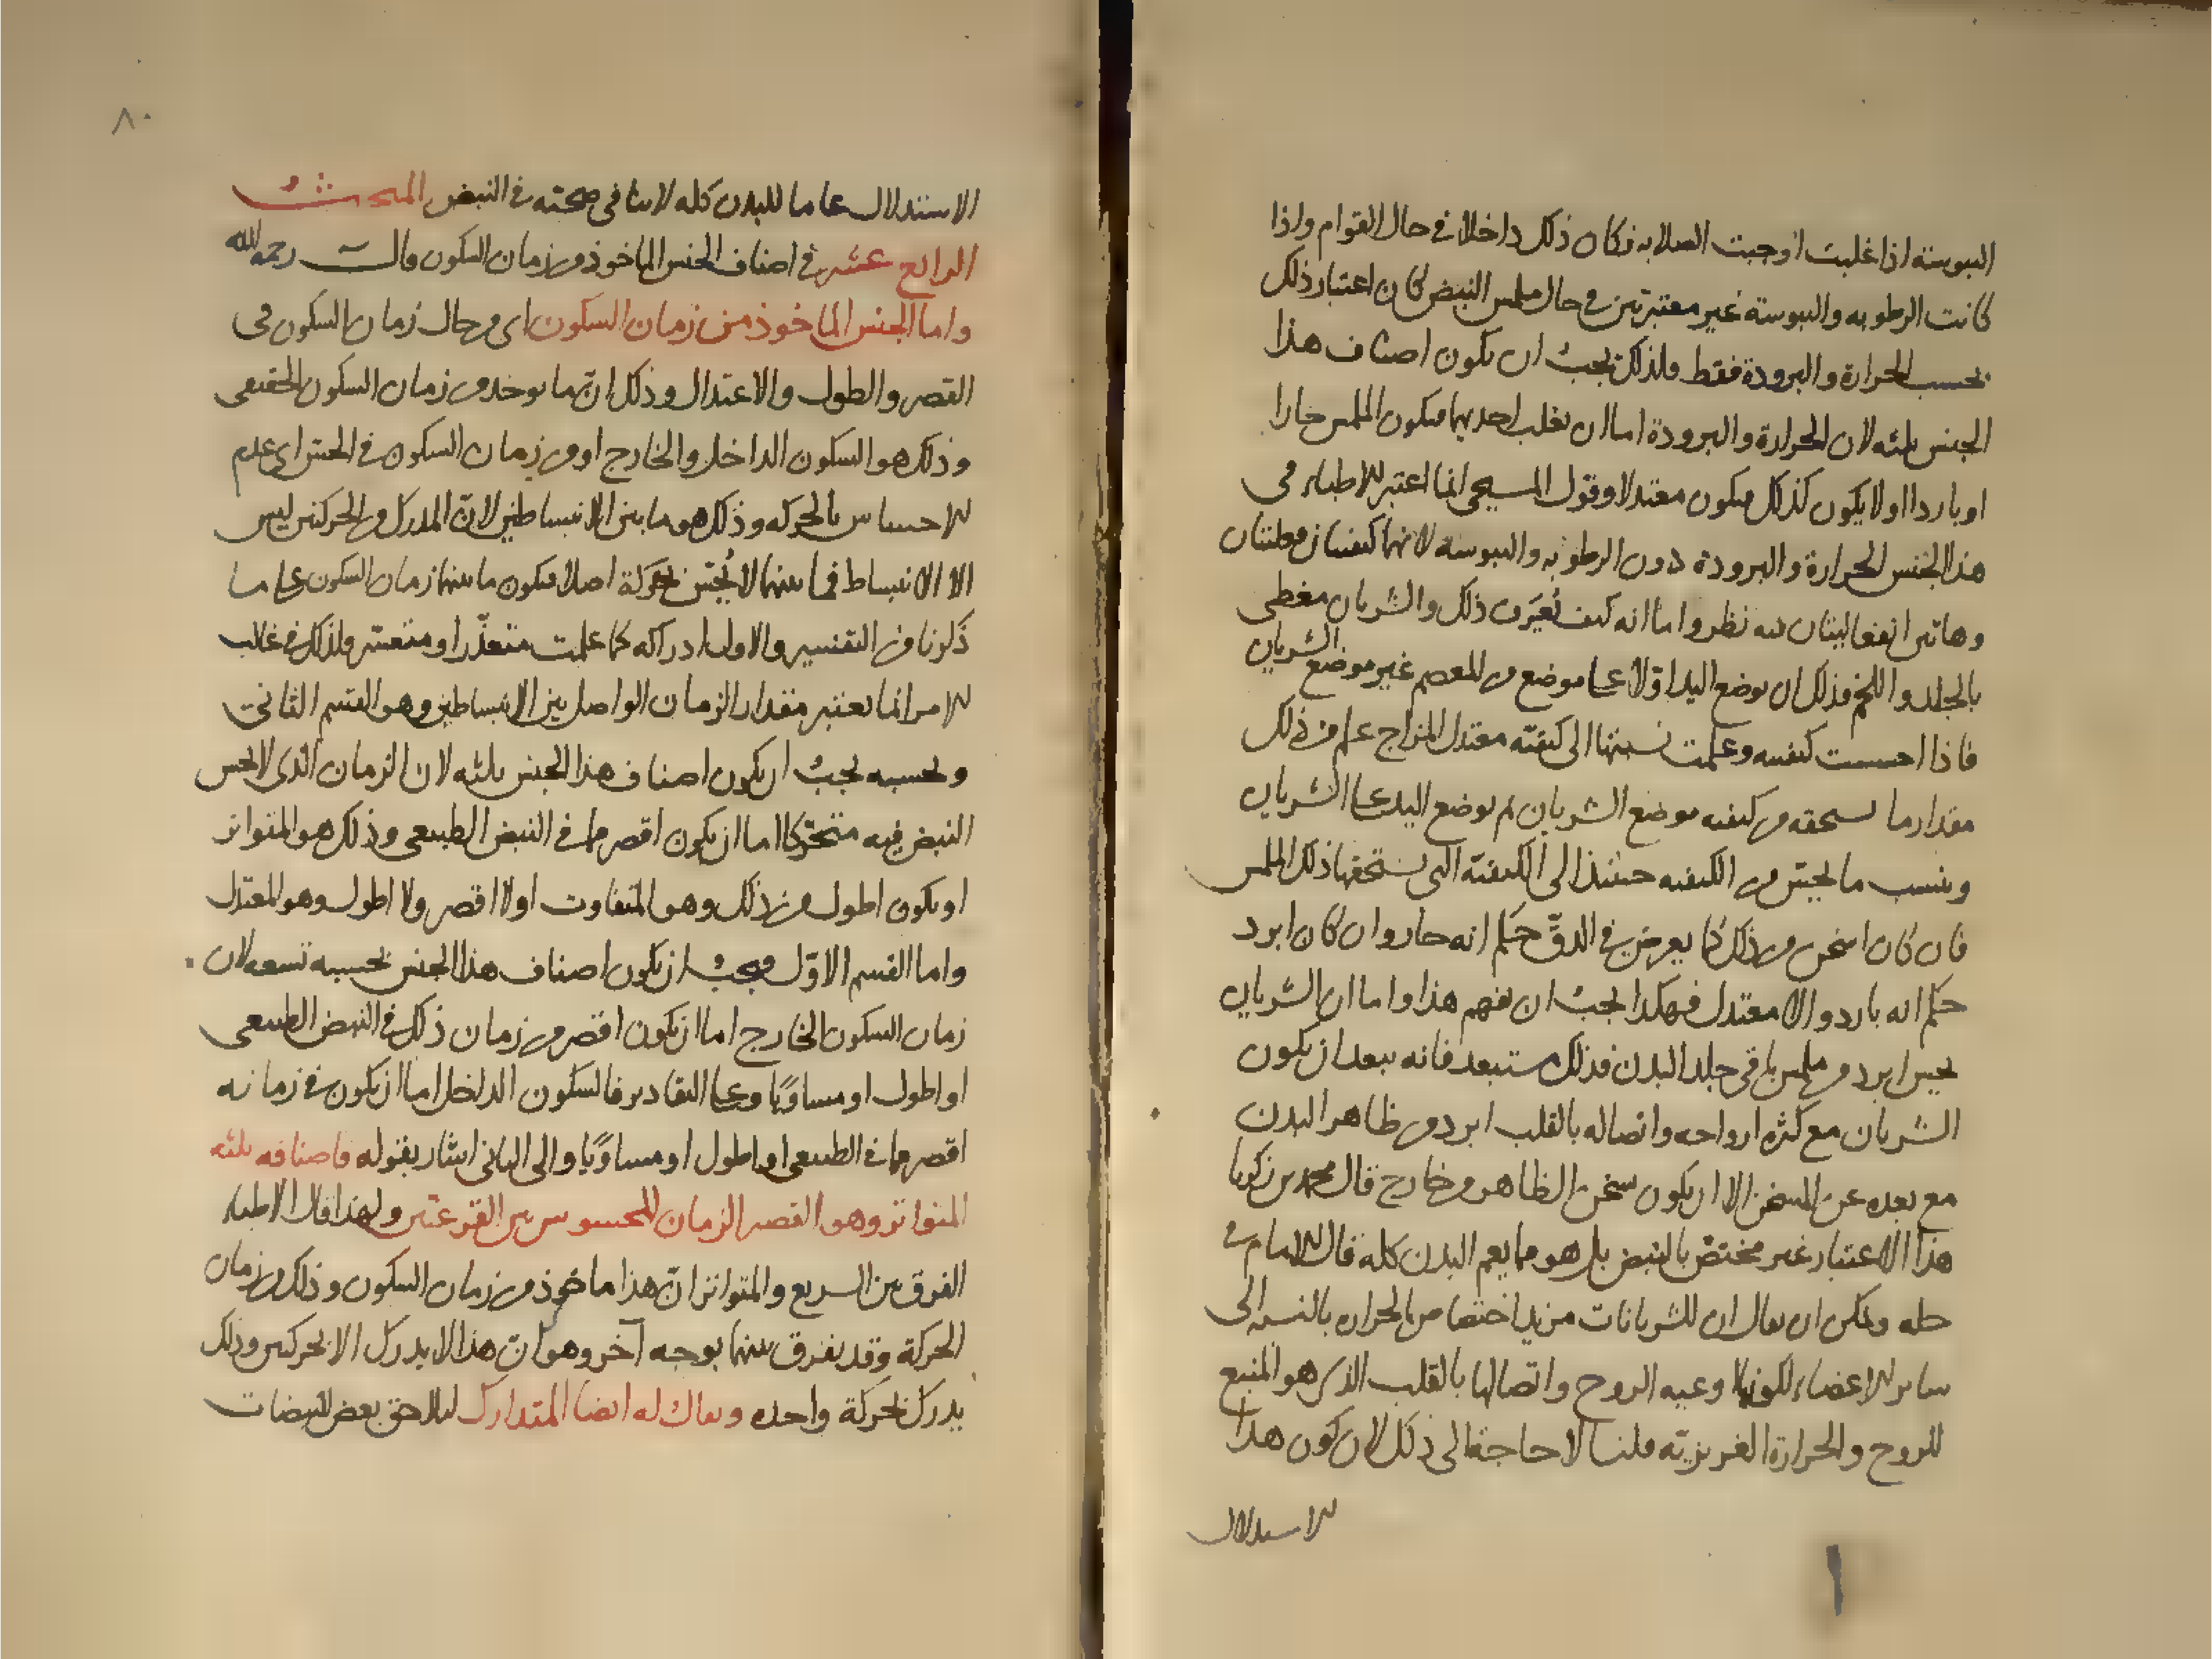 اليبوسة اذا غلبت اوجبت الصلابه فكان ذلك داخلا في حال القوام واذا
كانت الرطوبه واليبوسة غير معتبرتين في حال ملمس النبض كان اعتبار ذلك
بحسب الحرارة والبرودة فقط ولذلك يجب ان يكون اصناف هذا
الجنس ثلثه لان الحرارة والبرودة اما ان تغلب احديهما فيكون الملمس حارا
او باردا او لا يكون كذلك فيكون معتدلا وقول المسيحي انما اعتبر الاطباء في
هذا الجنس الحرارة والبرودة دون الرطوبه واليبوسة لانهما كيفيتان فعليتان
وهاتين انفعاليتان فيه نظر واما انه كيف تعرف ذلك والشريان مغطى
بالجلد واللحم فذلك ان يوضع اليد اولا على موضع من المعصم غير موضع الشريان
فاذا احسست كيفيته وعلمت نسبتها الى كيفيته معتدل المزاج علم من ذلك
مقدار ما يستحقه من كيفيه موضع الشريان ثم يوضع اليد على الشريان
وينسب ما يحس من الكيفيه حينئذ الى الكيفيّة التي يستحقها ذلك الملمس
فان كان اسخن من ذلك كما يعرض في الدقّ حكم انه حار وان كان ابرد
حكم انه بارد والا معتدل فهكذا يجب ان تفهم هذا واما ان الشريان
يحس ابرد من ملمس باقي جلد البدن فذلك مستبعد فانه يبعد ان يكون
الشريان مع كثرة ارواحه واتصاله بالقلب ابرد من ظاهر البدن
مع بعده عن المسخن الا ان يكون سخن الظاهر من خارج قال محمد بن زكريا
هذا الاعتبار غير مختصّ بالنبض بل هو مما يعم البدن كله قال الامام في
حله ويمكن ان يقال ان للشريانات مزيد اختصاص بالحراره بالنسبه الى
ساير الاعضاء لكونها اوعيه الروح واتصالها بالقلب الذي هو المنبع
للروح والحرارة الغريزيّه قلنا لا حاجة الى ذلك لان كون هذا
الاستدلال
٨٠
الاستدلال عاما للبدن كله لا ينافي صحته في النبض المبحث
الرابع عشر في اصناف الجنس الماخوذ من زمان السكون قال رحمه الله
واما الجنس الماخوذ من زمان السكون اى من حال زمان السكون في
القصر والطول والاعتدال وذلك انّ ما يوخذ من زمان السكون الحقيقي
وذلك هو السكون الداخل والخارج او من زمان السكون في الحس اى عدم
الاحساس بالحركه وذلك هو ما بين الانبساطين لانّ المدرك من الحركتين ليس
الا الانبساط فما بينهما لا يُحَسّ بحركة اصلا فيكون ما بينهما زمان السكون على ما
ذكرنا من التفسير والاول ادراكه كما علمت متعذّر او متعسّر ولذلك في غالب
الامر انما يعتبر مقدار الزمان الواصل بين الانبساطين وهو القسم الثاني
وبحسبه يجب ان يكون اصناف هذا الجنس ثلثه لان الزمان الذي لا يحس
النبض فيه متحرّكا اما ان يكون اقصر مما في النبض الطبيعي وذلك هو المتواتر
او يكون اطول من ذلك وهو المتفاوت او لا اقصر ولا اطول وهو المعتدل
واما القسم الاوّل فيجب ان يكون اصناف هذا الجنس بحسبه تسعه لان
زمان السكون الخارج اما ان يكون اقصر من زمان ذلك في النبض الطبيعي
او اطول او مساويًا وعلى التقادير فالسكون الداخل اما ان يكون في زمانه
اقصر مما في الطبيعى او اطول او مساويًا والى الثاني اشار بقوله فاصنافه ثلثه
المتواتر وهو القصير الزمان المحسوس بين القرعتين ولهذا قال الاطباء
الفرق بين السريع والمتواتر انّ هذا ماخوذ من زمان السكون وذلك من زمان
الحركة وقد يفرق بينهما بوجه آخر وهو انّ هذا لا يدرك الا بحركتين وذلك
يدرك بحركة واحده ويقال له ايضا المتدارك لتلاحق بعض النبضات